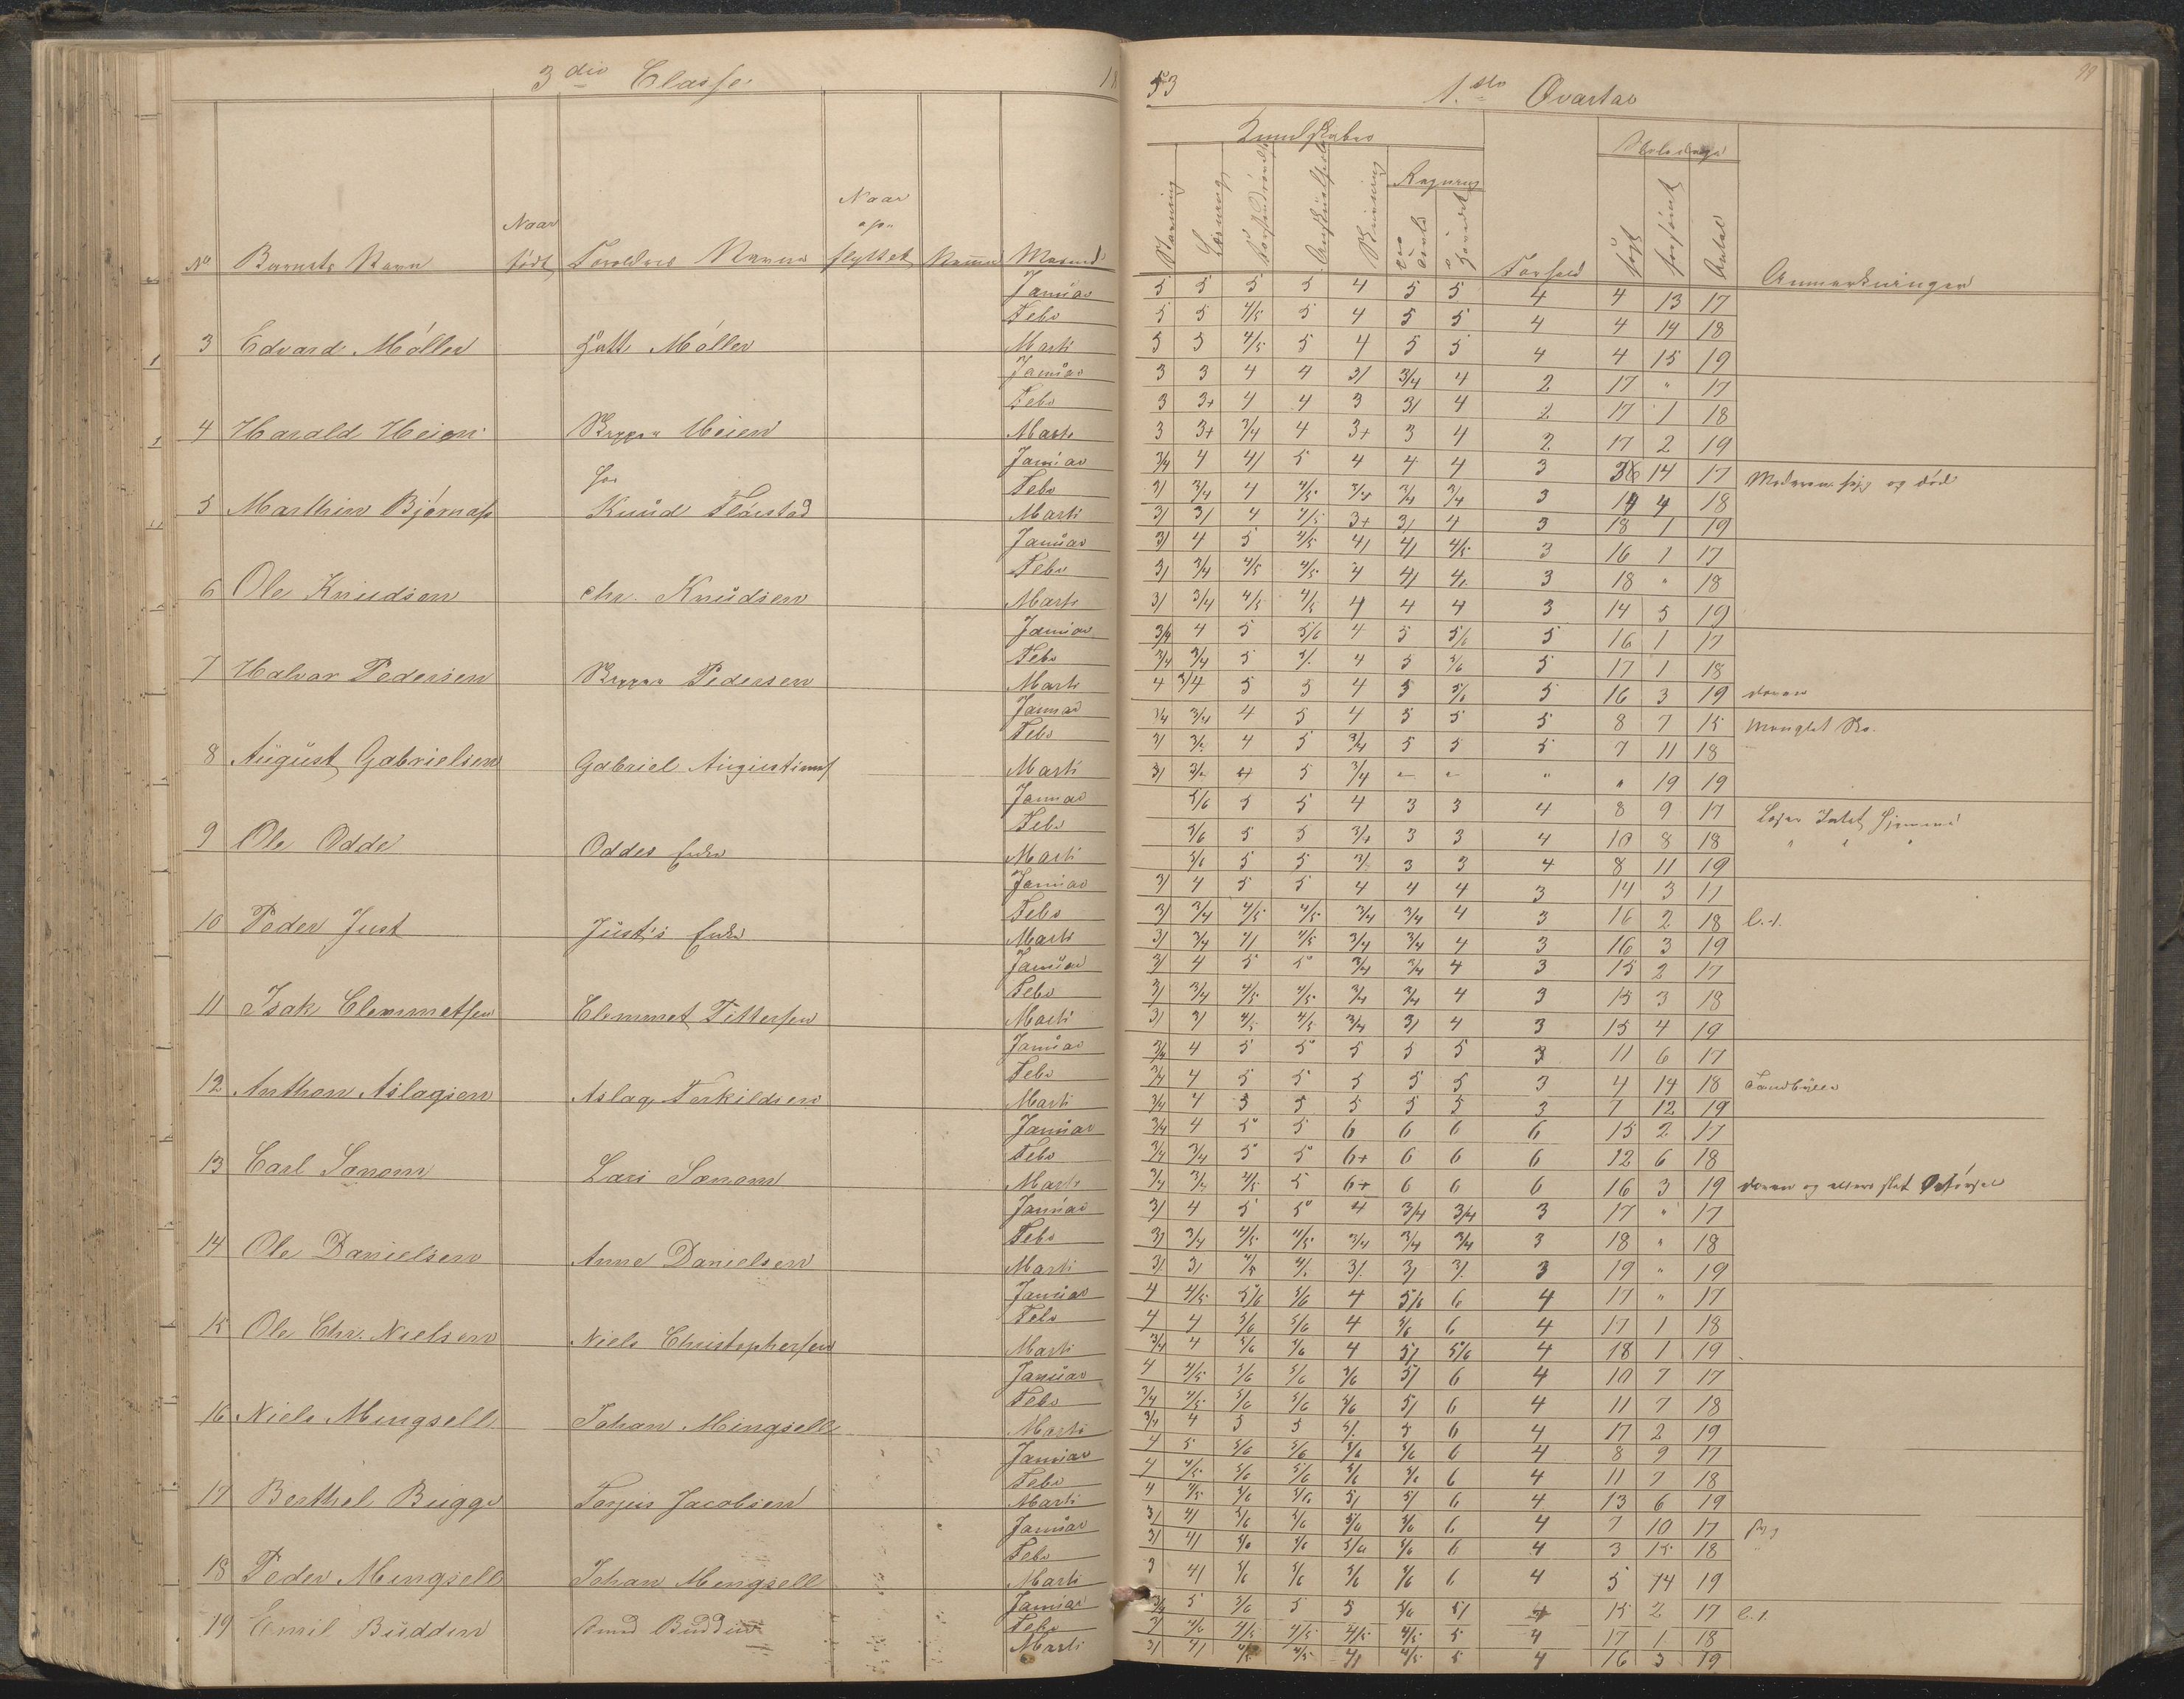 3die Classe. 18 53 1.ste Qvartar 99
Kundskaber
Skoledage
Regning
Naar
Naar
op-
No Barnets Navn født Foreldres Navne flyttet Maaned Læsning Forhold søgt forsømt Antal Anmærkninger
Januar 5 5 5 5 4 5 5 4 4 13 17
Febr 5 5 4/5 5 4 5 5 4 4 14 18
3 Edvard Möller Møller Marti 5 5 4/5 5 4 5 5 4 4 15 19
Januar 3 3 4 4 3/ 3/4 4 2 17 " 17
Febr 3 3+ 4 4 3 3/ 4 2 17 1 18
4 Harald Heien Heien Marti 3 3+ 3/4 4 3+ 3 4 2 17 2 19
Januar 3/4 4 4/ 5 4 4 4 3 14 17 og død
Febr 3/ 3/4 4 4/5 3/4 3/4 3/4 3 14 4 18
5 Marthin Knud Marti 3/ 3/ 4 4/5 3+ 3/ 4 3 18 1 19
Januar 3/ 4 5 4/5 4/ 4/ 4/5 3 16 1 17
Febr 3/ 3/4 4/5 4/5 4 4/ 4/ 3 18 " 18
6 Ole Knudsen Chr. Knudsen Marti 3/ 3/4 4/5 4/5 4 4 4 3 14 5 19
Januar 3/4 4 5 5/6 4 5 5/6 5 16 1 17
Febr 3/4 3/4 5 5/ 4 5 5/6 5 17 1 18
7 Halvor Pedersen Pedersen Marti 4 3/4 5 5 4 5 5/6 5 16 3 19 doven
Januar 3/4 3/4 4 5 4 5 5 5 8 7 15 manglet Sko.
Febr 3/ 3/4 4 5 3/4 5 5 5 7 11 18
8 August Gabrielsen Gabriel Marti 3/ 5 3/4 " " " " 19 19
Januar 5/6 5 5 4 3 3 4 8 9 17 Hjemme
Febr 5/6 5 5 3/4 3 3 4 10 8 18 " " "
9 Ole Odde Oddes Marti 5/6 5 5 3/ 3 3 4 8 11 19
Januar 3/ 4 5 5 4 4 4 3 14 3 17
Febr 3/ 3/4 4/5 4/5 3/4 3/4 4 3 16 2 18
10 Peder Just Just's Marti 3/ 3/4 4/ 4/5 3/4 3/4 4 3 16 3 19
Januar 3/ 4 5 5 3/4 3/4 4 3 15 2 17
Febr 3/ 3/4 4/5 4/5 3/4 3/4 4 3 15 3 18
11 Isak Clemmetsen Clemmet Pettersen Marti 3/ 3/ 4/5 4/5 3/4 3/ 4 3 15 4 19
Januar 3/4 4 5 5 5 5 5 3 11 6 17
Febr 3/4 4 5 5 5 5 5 3 4 14 18 Tandbyld
12 Anthon Aslagsen Aslag Terkildsen Marti 3/4 4 5 5 5 5 5 3 7 12 19
Januar 3/4 4 5 5 6 6 6 6 15 2 17
Febr 3/4 3/4 5 5 6+ 6 6 6 12 6 18
13 Carl Sanom Lars Sanom Marti 3/4 3/4 4/5 5 6+ 6 6 6 16 3 19 doven og slet
Januar 3/ 4 5 5 4 3/4 3/4 3 17 " 17
Febr 3/ 3/4 4/5 4/5 3/4 3/4 3/4 3 18 " 18
14 Ole Danielsen Anne Danielsen Marti 3/ 3/ 4/5 4/5 3/ 3/ 3/ 3 19 " 19
Januar 4 4/5 5/6 5/6 4 5/6 6 4 17 " 17
Febr 4 4 5/6 5/6 4 5/6 6 4 17 1 18
15 Ole Chr. Nielsen Niels Christophersen Marti 3/4 4 5/6 5/6 4 5/ 5/6 4 18 1 19
Januar 4 4/5 5/6 5/6 5/6 5/ 6 4 10 7 17
Febr 3/4 4/5 5/6 5/6 5/6 5/ 6 4 11 7 18
16 Niels Mengsell Johan Mengsell Marti 3/4 4 5 5 5/ 5 6 4 17 2 19
Januar 4 5 5/6 5/6 5/6 5/6 6 4 8 9 17
Febr 4 4/5 5/6 5/6 5/6 5/6 6 4 11 7 18
17 Berthel Bugge Torjus Jacobsen Marti 4 4/5 5/6 5/6 5/ 5/ 6 4 13 6 19
Januar 3/ 4/ 5/6 5/6 5/6 5/6 6 4 7 10 17 syg
Febr 3/ 4/ 5/6 5/6 5/6 5/6 6 4 3 15 18 "
18 Peder Mengsell Johan Mengsell Marti 3 4/ 5/6 5/6 5/6 5/6 6 4 5 14 19
Januar 3/4 5 5/6 5 5 5/6 5/ 4 15 2 17
Febr 3/ 4/5 4/5 4/5 4/5 4/5 5 4 17 1 18
19 Emil Budden Budden Marti 3/ 4/ 4/5 4/5 4/ 4/5 5 4 16 3 19